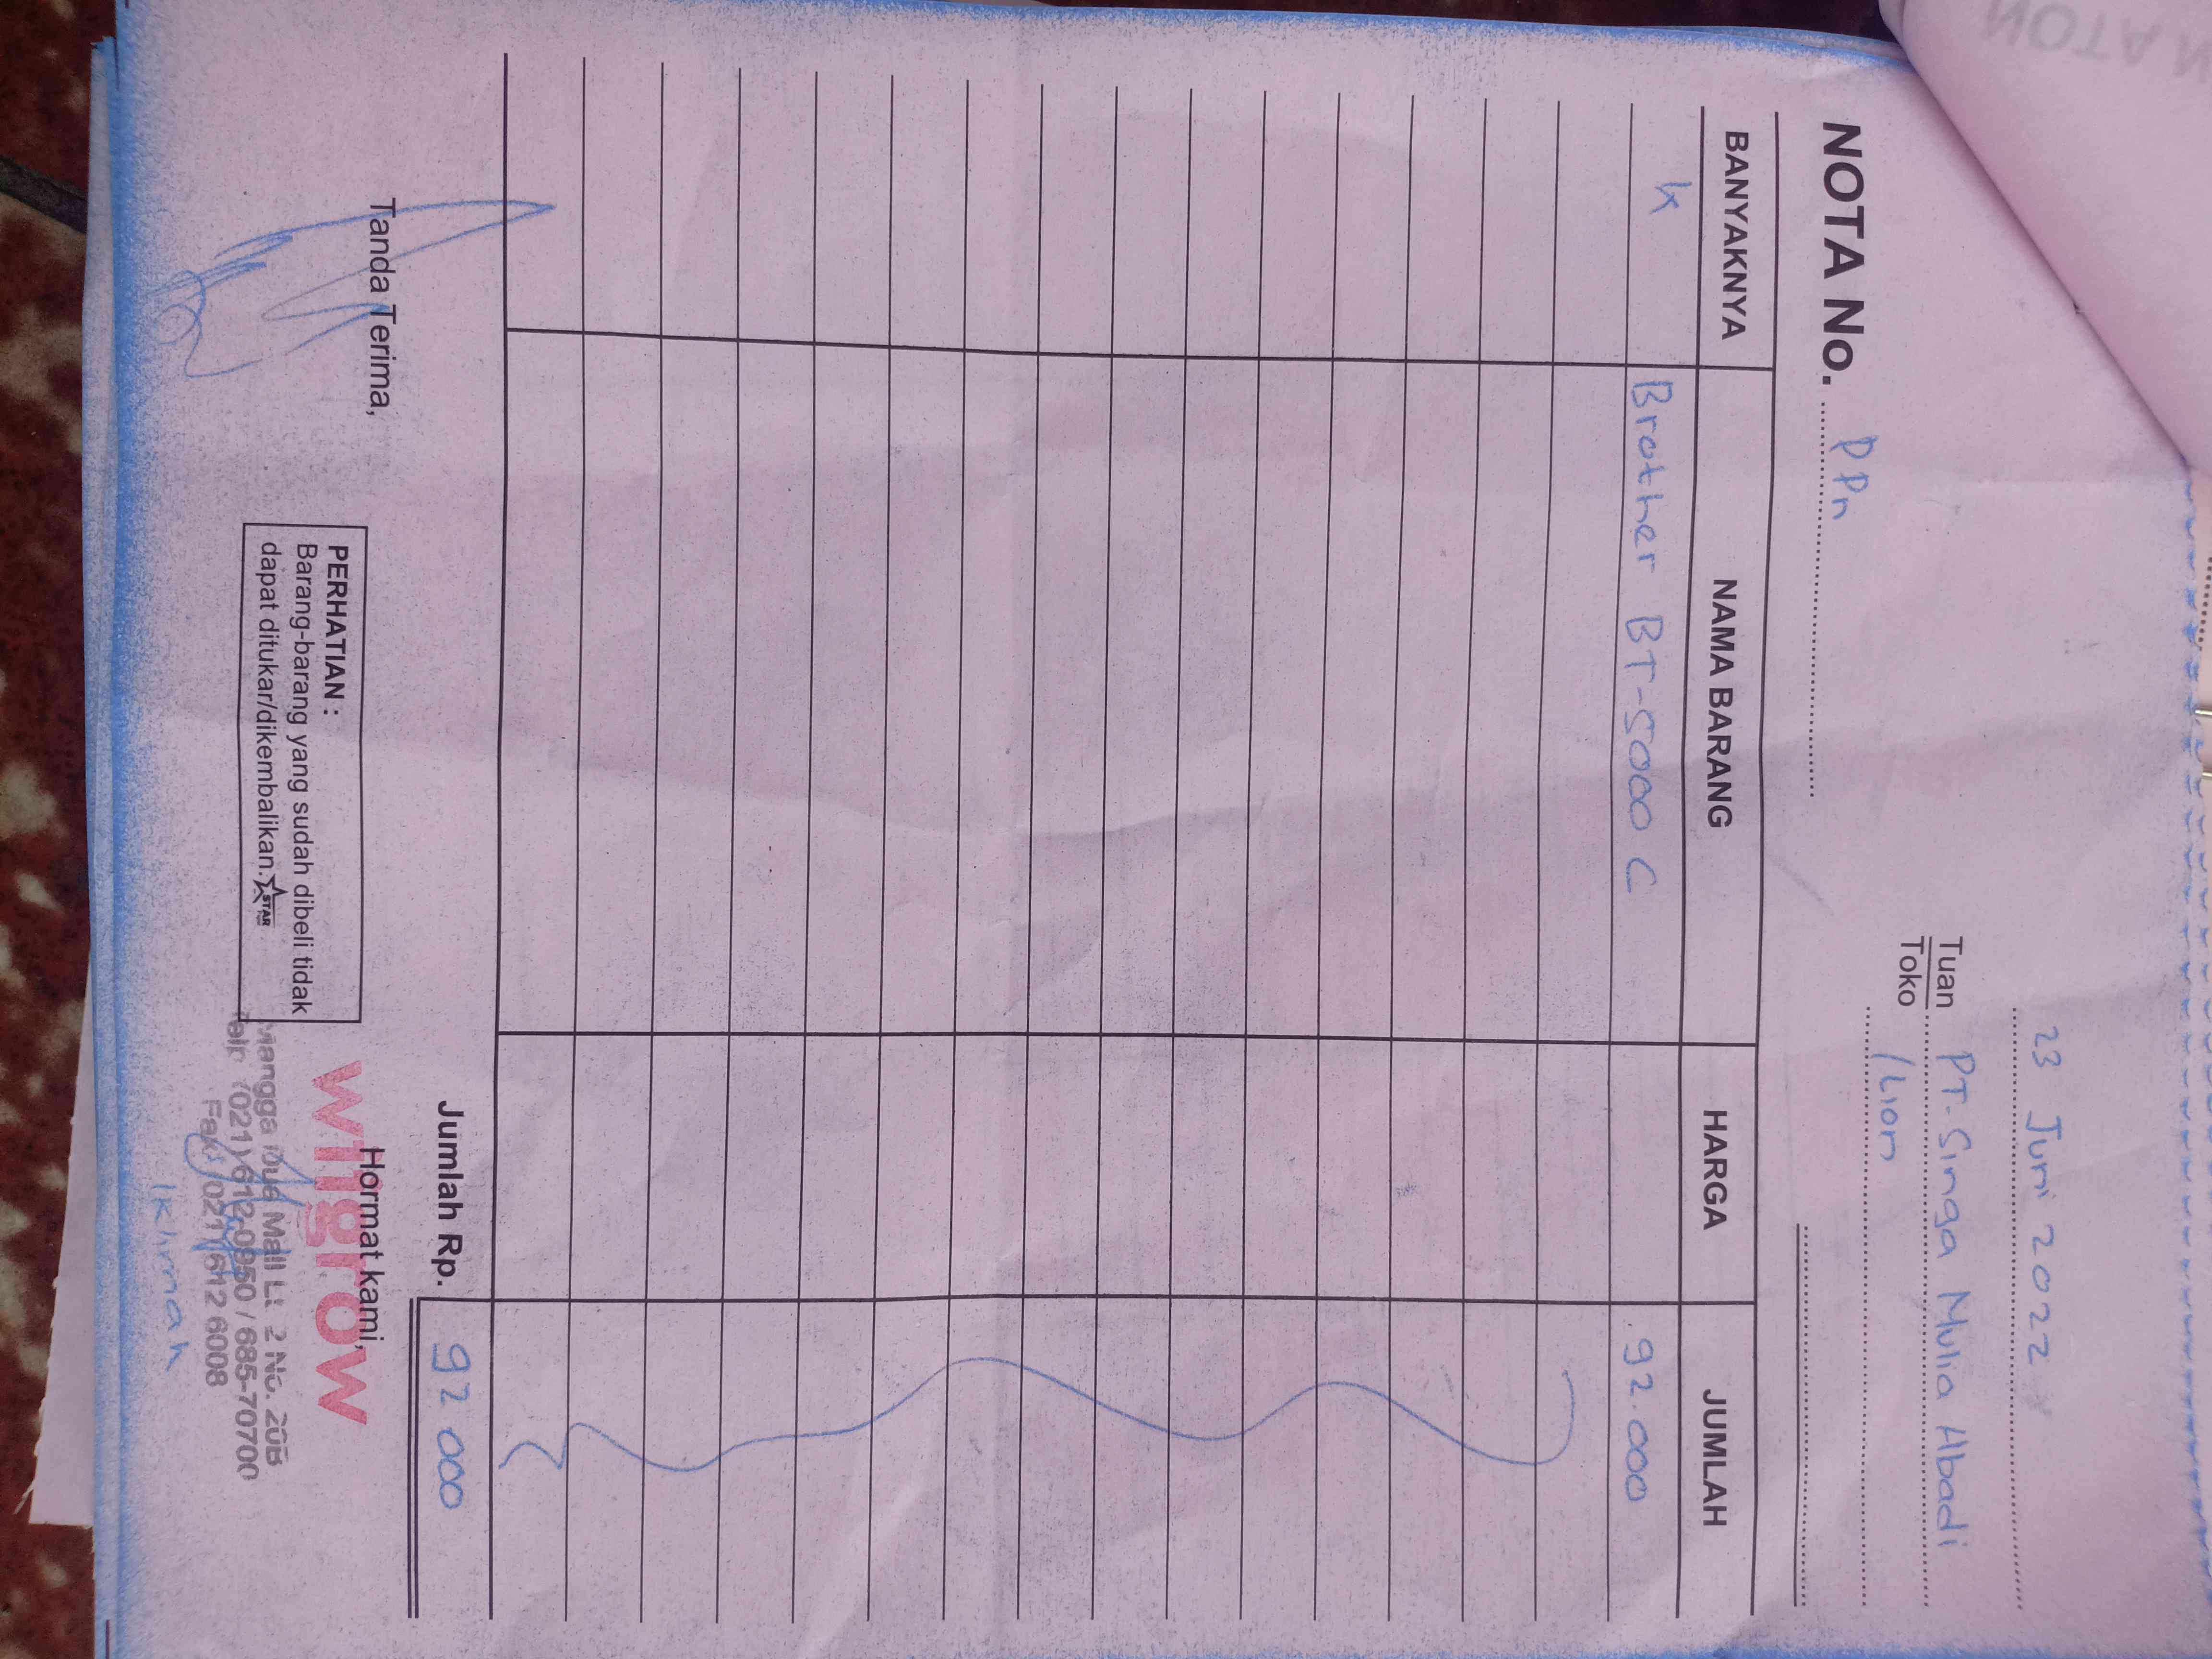 23 Juni 2022
Tuan PT. Singa Mulia Abadi
Toko /Lion
NOTA No. PPn
BANYAKNYA NAMA BARANG HARGA JUMLAH
Brother BT-5000 C 92.000
Jumlah Rp. 92 000
Tanda Terima,
Hormat kami,
PERHATIAN :
Barang-barang yang sudah dibeli tidak
dapat ditukar/dikembalikan.
STAR
wiigrow
Mangga Dua Mall Lt 2 No. 20B
Telp (021) 612-0950 / 685-70700
Fax (021) 612 6008
Iklimah
NOTA